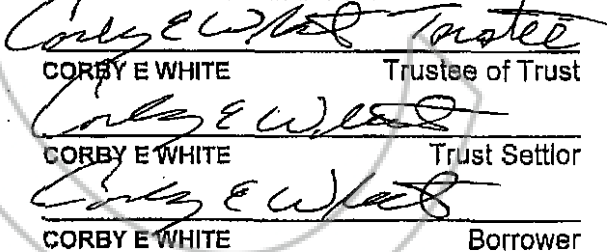 Corby E White Trustee
CORBY E WHITE Trustee of Trust
Corby E White
CORBY E WHITE Trust Settlor
Corby E White
CORBY E WHITE Borrower